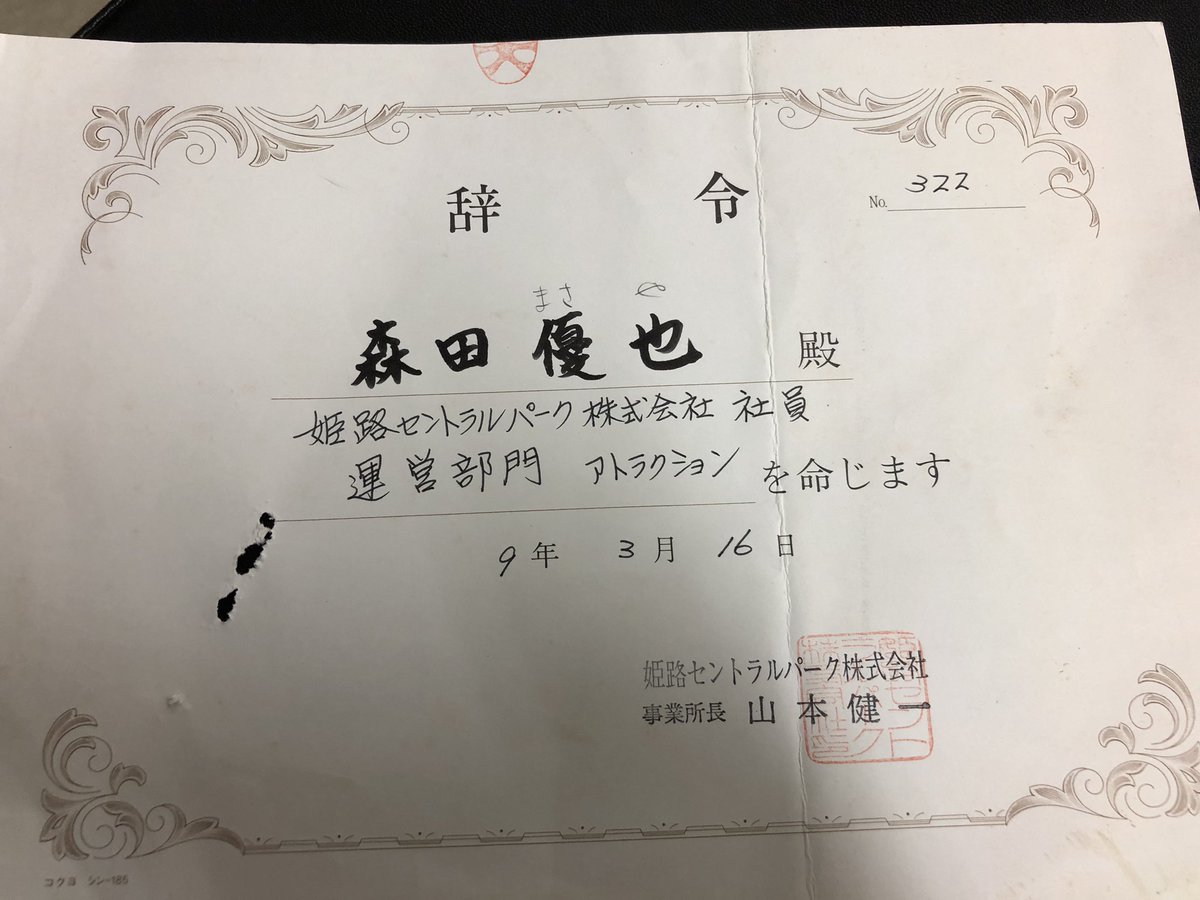 辞令
No. 322
まさ や
森田優也 殿
姫路セントラルパーク株式会社 社員
運営部門 アトラクション を命じます
9年 3月 16日
姫路セントラルパーク株式会社
事業所長 山本健一
コクヨ シン-186